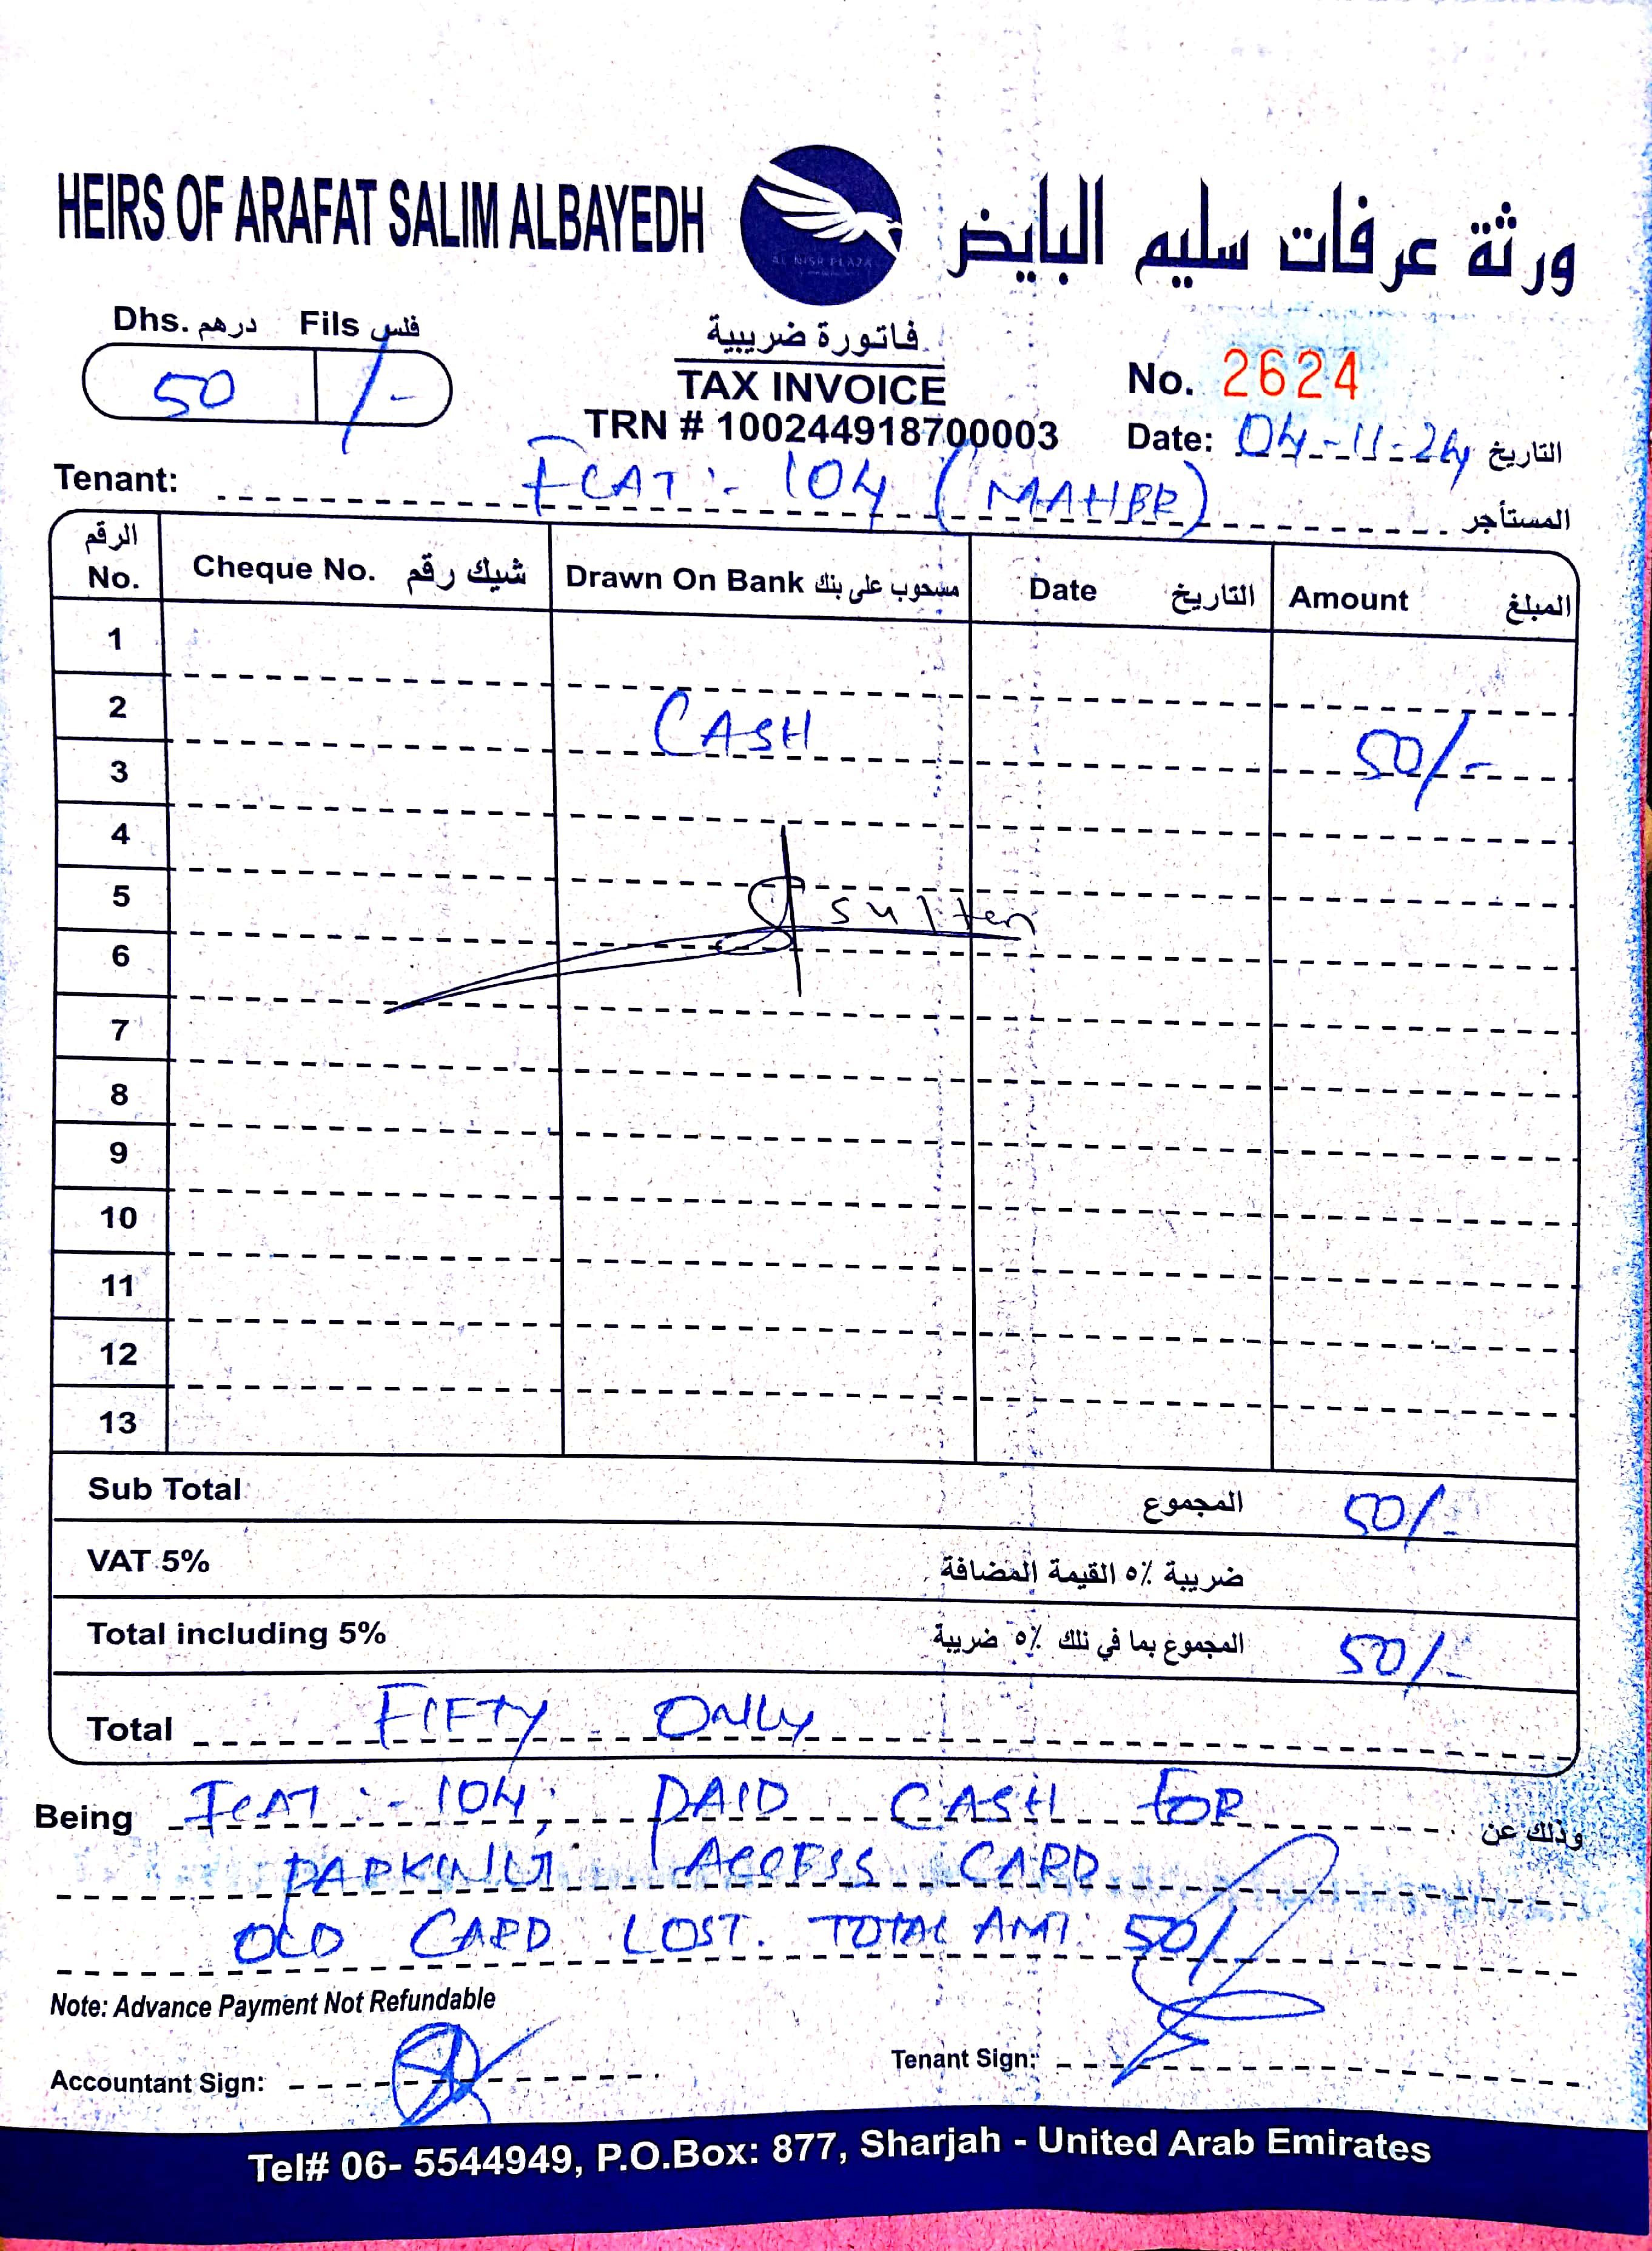 HEIRS OF ARAFAT SALIM ALBAYEDH
AL NISR PLAZA
ورثة عرفات سليم البايض
Dhs. درهم Fils فلس
50 /-
فاتورة ضريبية
TAX INVOICE
TRN # 100244918700003
No. 2624
Date: 04-11-24 التاريخ
Tenant: FLAT :- 104 (MAHBR) المستأجر
الرقم No. Cheque No. شيك رقم Drawn On Bank مسحوب على بنك Date التاريخ Amount المبلغ
1
2 CASH 50/-
3
4
5 sulten
6
7
8
9
10
11
12
13
Sub Total المجموع 50/-
VAT 5% ضريبة ٥٪ القيمة المضافة
Total including 5% المجموع بما في ذلك ٥٪ ضريبة 50/-
Total FIFTY ONLY
Being FLAT :- 104, PAID CASH FOR وذلك عن
PARKING ACCESS CARD
OLD CARD LOST. TOTAL AMT: 50/-
Note: Advance Payment Not Refundable
Accountant Sign: Tenant Sign:
Tel# 06- 5544949, P.O.Box: 877, Sharjah - United Arab Emirates